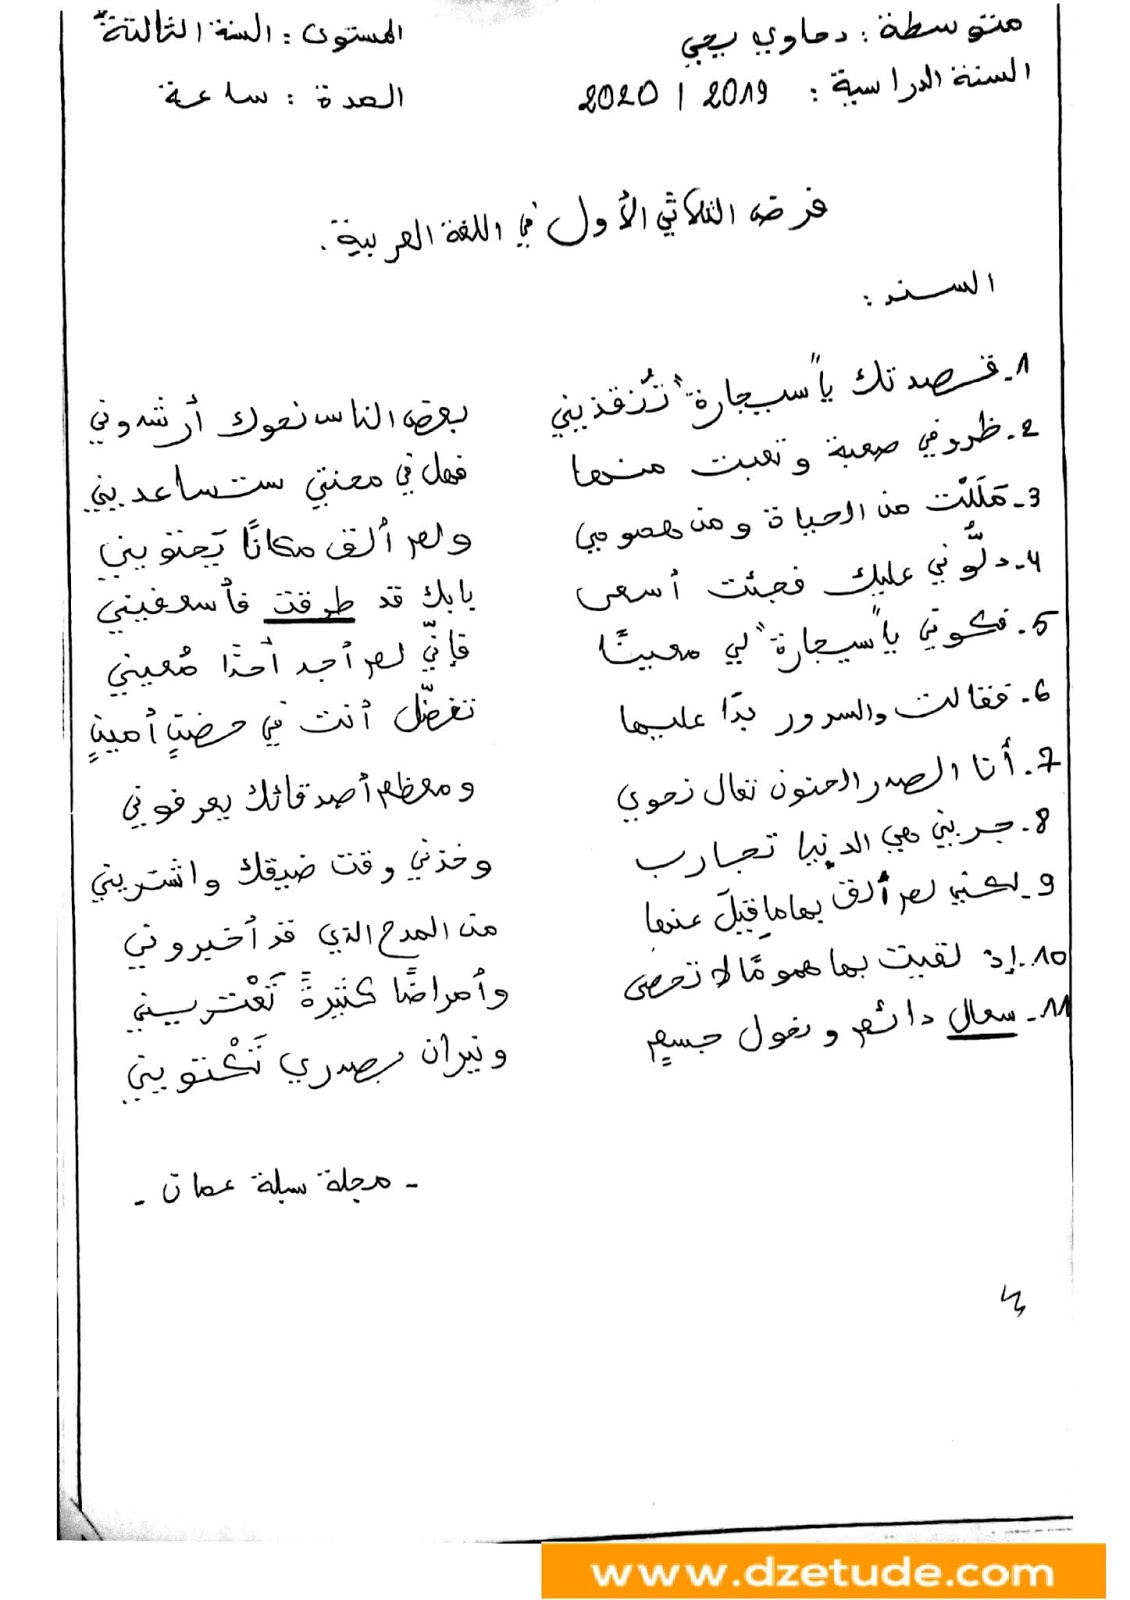 متوسطة : دحاوي يحيي المستوى : السنة الثالثة
السنة الدراسية : 2019 / 2020 المدة : ساعة
فرض الثلاثي الأول في اللغة العربية .
السند :
1- قصدتك يا "سيجارة" تُنقذيني بعض الناس نحوك أرشدوني
2- ظروفي صعبة وتعبت منها فهل في محنتي ستساعديني
3- مَلَلْت من الحياة ومن همومي ولم ألق مكانًا يَحتويني
4- دلُّوني عليك فجئت أسعى بابك قد طرقت فأسعفيني
5- فكوني يا "سيجارة" لي معينًا فإنّي لم أجد أحدًا مُعيني
6- فقالت والسرور بدَا عليها تفضّل أنت في حضنٍ أمينٍ
7- أنا الصدر الحنون تعال نحوي ومعظم أصدقائك يعرفوني
8- جربني هي الدنيا تجارب وخذني وقت ضيقك واشتريني
9- لكني لم ألق بها ما قيلَ عنها من المدح الذي قد أخبروني
10- إذ لقيت بها همومًا لا تحصى وأمراضًا كثيرةً تَعْتريني
11- سعال دائم ونحول جسمٍ ونيران بصدري تَكْتويني
- مجلة سبلة عمان -
www.dzetude.com